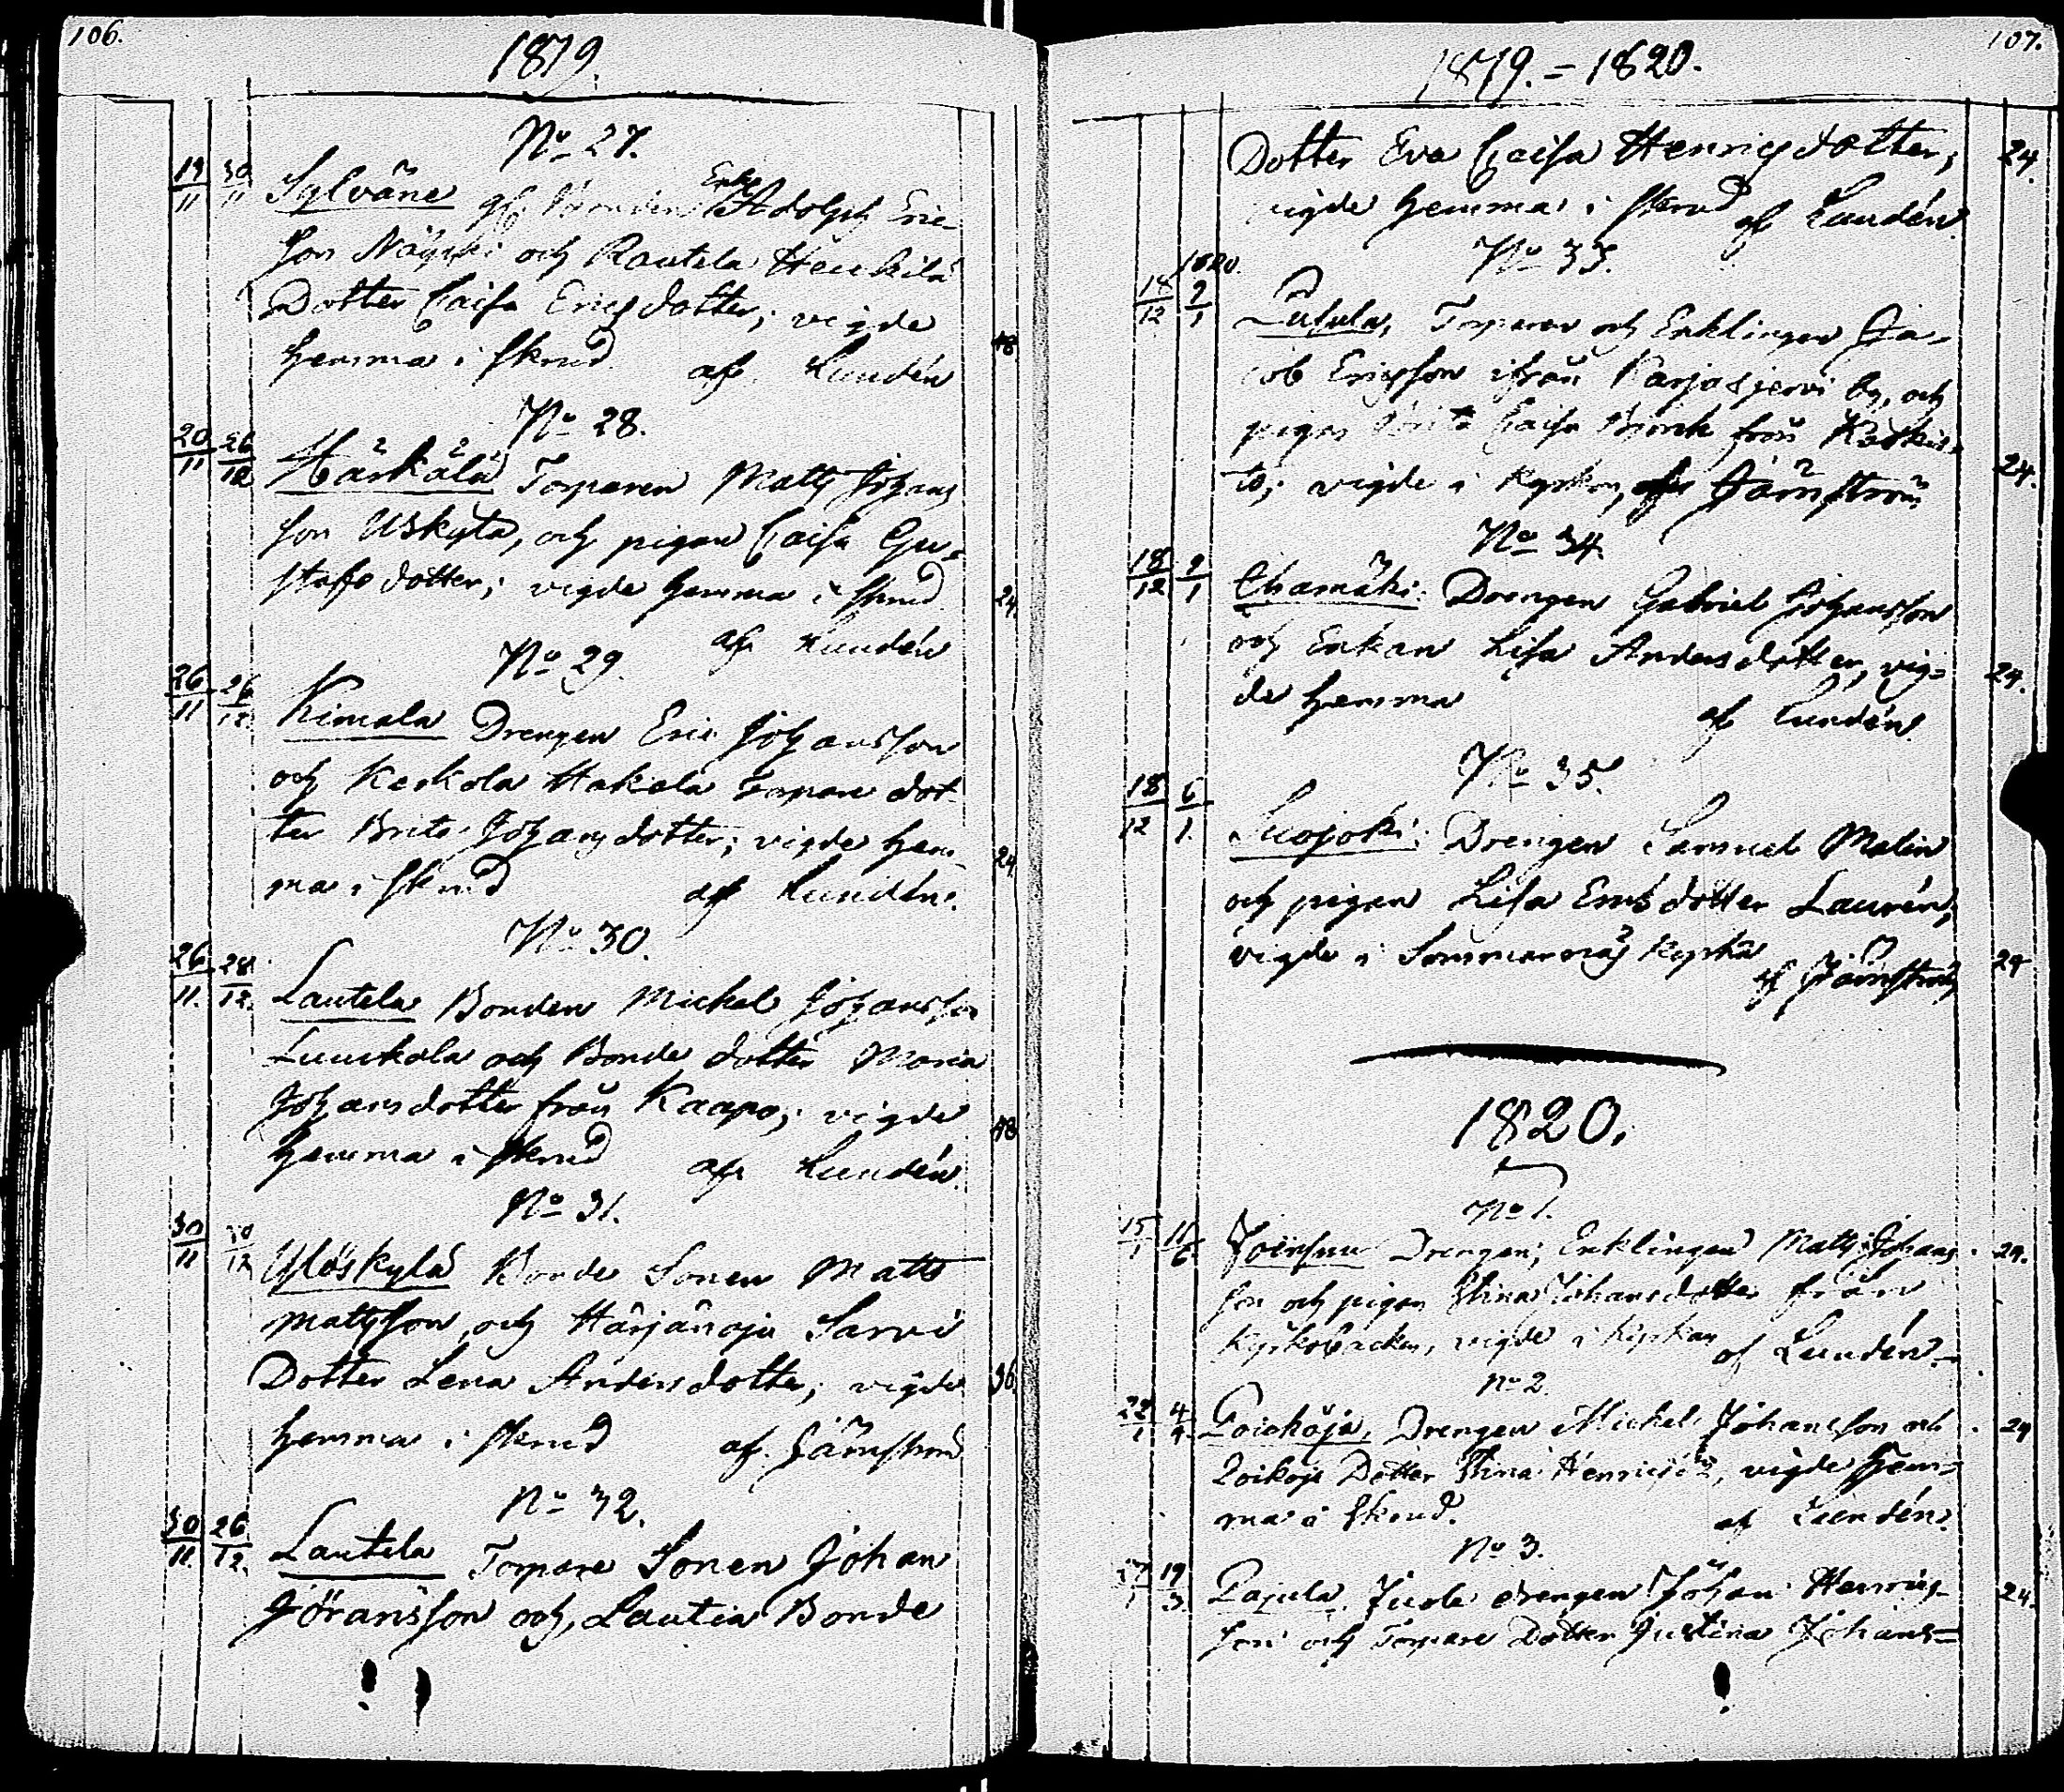 106.
1819.
No 27.
19/11 30/11 Sylväne gf. Bonden Enkl. Adolph Eric-
son Näyhi och Rautela Heickilä
Dotter Caisa Ericsdotter; vigde
hemma i skrud af Lundén 48
No 28.
20/11 26/12 Härkälä Torparen Matts Johans
son Uskyla, och pigan Caisa Gu-
stafsdotter; vigde hemma i skrud 24.
af Lundén
No 29.
26/11 26/12 Kimala Drengen Eric Johansson
och Keskola Hakola Torpare dot-
ter Brita Johansdotter; vigde hem-
ma i skrud af Lundén. 24
No 30.
26/11. 28/12. Lautela Bonden Michel Johansson
Luuskola och Bonde dotter Maria
Johansdotter från Kaapo; vigde
hemma i skrud af Lundén. 48
No 31.
30/11 30/12 Yliskylä Bonde Sonen Matts
Mattsson, och Härjänoja Sarvi
Dotter Lena Andersdotter; vigde 36.
hemma i skrud af Järnström
No 32.
30/11. 26/12. Lautela Torpare Sonen Johan
Jöransson och, Lautia Bonde
107.
1819. = 1820.
Dotter Eva Caisa Henricsdotter; 24.
vigde hemma i skrud af Lundén.
No 33.
1820.
18/12 9/1 Torparen och Enklingen Ja-
cob Ericsson ifrån Karjosjervi by, och
pigan Brita Caisa Björk från Kotkis-
to; vigde i Kyrkan, af Järnström 24.
No 34.
18/12 9/1 Drengen Gabriel Johansson
och Enkan Lisa Andersdotter, vig-
de hemma af Lundén. 24.
No 35.
18/12 6/1. Suojoki: Drengen Samuel Malin
och pigan Lisa Ericsdotter Laurén;
vigde i Sommarnäs kyrka af Järnström 24
1820.
No 1.
15/1 11/6 Drengen, Enklingen Matts Johans- 24.
son och pigan Stina Johansdotter från
Kyrkobacken, vigde i Kyrkan af Lundén.
No 2.
22/1 4/4. Drengen Michel Johansson och 24
Dotter Stina Henricsdr, vigde hem-
ma i skrud. af Lundén.
No 3.
19/3. Pajula. Jude drengen Johan Henrics- 24.
son och Torpare Dotter Justina Johans=